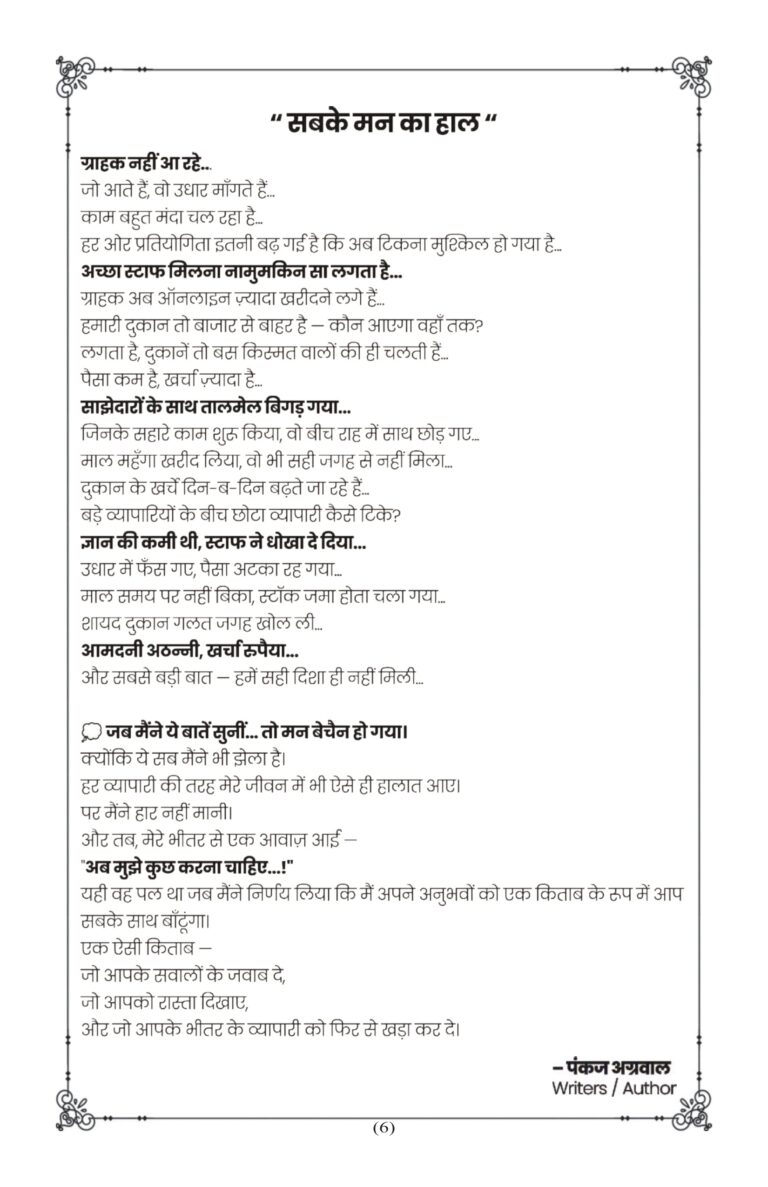 “ सबके मन का हाल “
ग्राहक नहीं आ रहे...
जो आते हैं, वो उधार माँगते हैं...
काम बहुत मंदा चल रहा है...
हर ओर प्रतियोगिता इतनी बढ़ गई है कि अब टिकना मुश्किल हो गया है...
अच्छा स्टाफ मिलना नामुमकिन सा लगता है...
ग्राहक अब ऑनलाइन ज़्यादा खरीदने लगे हैं...
हमारी दुकान तो बाजार से बाहर है — कौन आएगा वहाँ तक?
लगता है, दुकानें तो बस किस्मत वालों की ही चलती हैं...
पैसा कम है, खर्चा ज़्यादा है...
साझेदारों के साथ तालमेल बिगड़ गया...
जिनके सहारे काम शुरू किया, वो बीच राह में साथ छोड़ गए...
माल महँगा खरीद लिया, वो भी सही जगह से नहीं मिला...
दुकान के खर्चे दिन-ब-दिन बढ़ते जा रहे हैं...
बड़े व्यापारियों के बीच छोटा व्यापारी कैसे टिके?
ज्ञान की कमी थी, स्टाफ ने धोखा दे दिया...
उधार में फँस गए, पैसा अटका रह गया...
माल समय पर नहीं बिका, स्टॉक जमा होता चला गया...
शायद दुकान गलत जगह खोल ली...
आमदनी अठन्नी, खर्चा रुपैया...
और सबसे बड़ी बात — हमें सही दिशा ही नहीं मिली...
💭 जब मैंने ये बातें सुनीं... तो मन बेचैन हो गया।
क्योंकि ये सब मैंने भी झेला है।
हर व्यापारी की तरह मेरे जीवन में भी ऐसे ही हालात आए।
पर मैंने हार नहीं मानी।
और तब, मेरे भीतर से एक आवाज़ आई —
"अब मुझे कुछ करना चाहिए...!"
यही वह पल था जब मैंने निर्णय लिया कि मैं अपने अनुभवों को एक किताब के रूप में आप
सबके साथ बाँटूंगा।
एक ऐसी किताब —
जो आपके सवालों के जवाब दे,
जो आपको रास्ता दिखाए,
और जो आपके भीतर के व्यापारी को फिर से खड़ा कर दे।
– पंकज अग्रवाल
Writers / Author
(6)